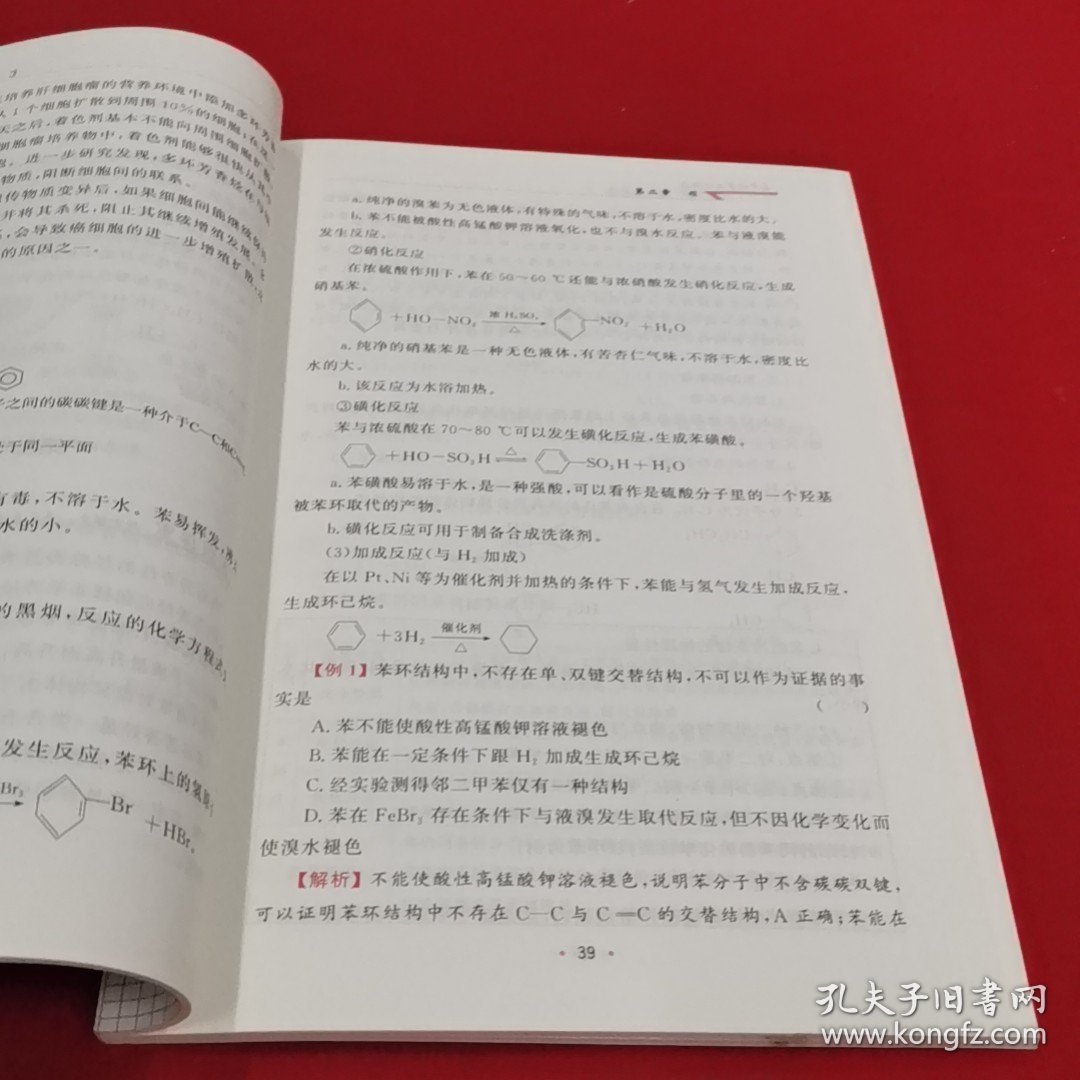 培养肝细胞瘤的营养环境中添加多环芳
从1个细胞扩散到周围10%的细胞；在
天之后，着色剂基本不能向周围细胞扩
细胞瘤培养物中，着色剂能够很快从
进一步研究发现，多环芳香烃在
物质，阻断细胞间的联系。
传物质变异后，如果细胞间能继续
并将其杀死，阻止其继续增殖发展。
会导致癌细胞的进一步增殖扩散
的原因之一。
之间的碳碳键是一种介于C—C和C
处于同一平面
有毒，不溶于水。苯易挥发，沸
水的小。
的黑烟，反应的化学方程式
发生反应，苯环上的氢原
Br₃ —Br +HBr。
第二章 烃
a. 纯净的溴苯为无色液体，有特殊的气味，不溶于水，密度比水的大。
b. 苯不能被酸性高锰酸钾溶液氧化，也不与溴水反应。苯与液溴能
发生反应。
②硝化反应
在浓硫酸作用下，苯在50～60 ℃还能与浓硝酸发生硝化反应，生成
硝基苯。
+HO—NO₂ 浓 H₂SO₄ △ —NO₂ +H₂O
a. 纯净的硝基苯是一种无色液体，有苦杏仁气味，不溶于水，密度比
水的大。
b. 该反应为水浴加热。
③磺化反应
苯与浓硫酸在70～80 ℃可以发生磺化反应，生成苯磺酸。
+HO—SO₃H ⇌ △ —SO₃H+H₂O
a. 苯磺酸易溶于水，是一种强酸，可以看作是硫酸分子里的一个羟基
被苯环取代的产物。
b. 磺化反应可用于制备合成洗涤剂。
(3)加成反应(与 H₂ 加成)
在以 Pt、Ni 等为催化剂并加热的条件下，苯能与氢气发生加成反应，
生成环己烷。
+3H₂ 催化剂 △
【例1】苯环结构中，不存在单、双键交替结构，不可以作为证据的事
实是 ( )
A. 苯不能使酸性高锰酸钾溶液褪色
B. 苯能在一定条件下跟 H₂ 加成生成环己烷
C. 经实验测得邻二甲苯仅有一种结构
D. 苯在 FeBr₃ 存在条件下与液溴发生取代反应，但不因化学变化而
使溴水褪色
【解析】不能使酸性高锰酸钾溶液褪色，说明苯分子中不含碳碳双键，
可以证明苯环结构中不存在 C—C 与 C═C 的交替结构，A 正确；苯能在
• 39 •
孔夫子旧书网
www.kongfz.com